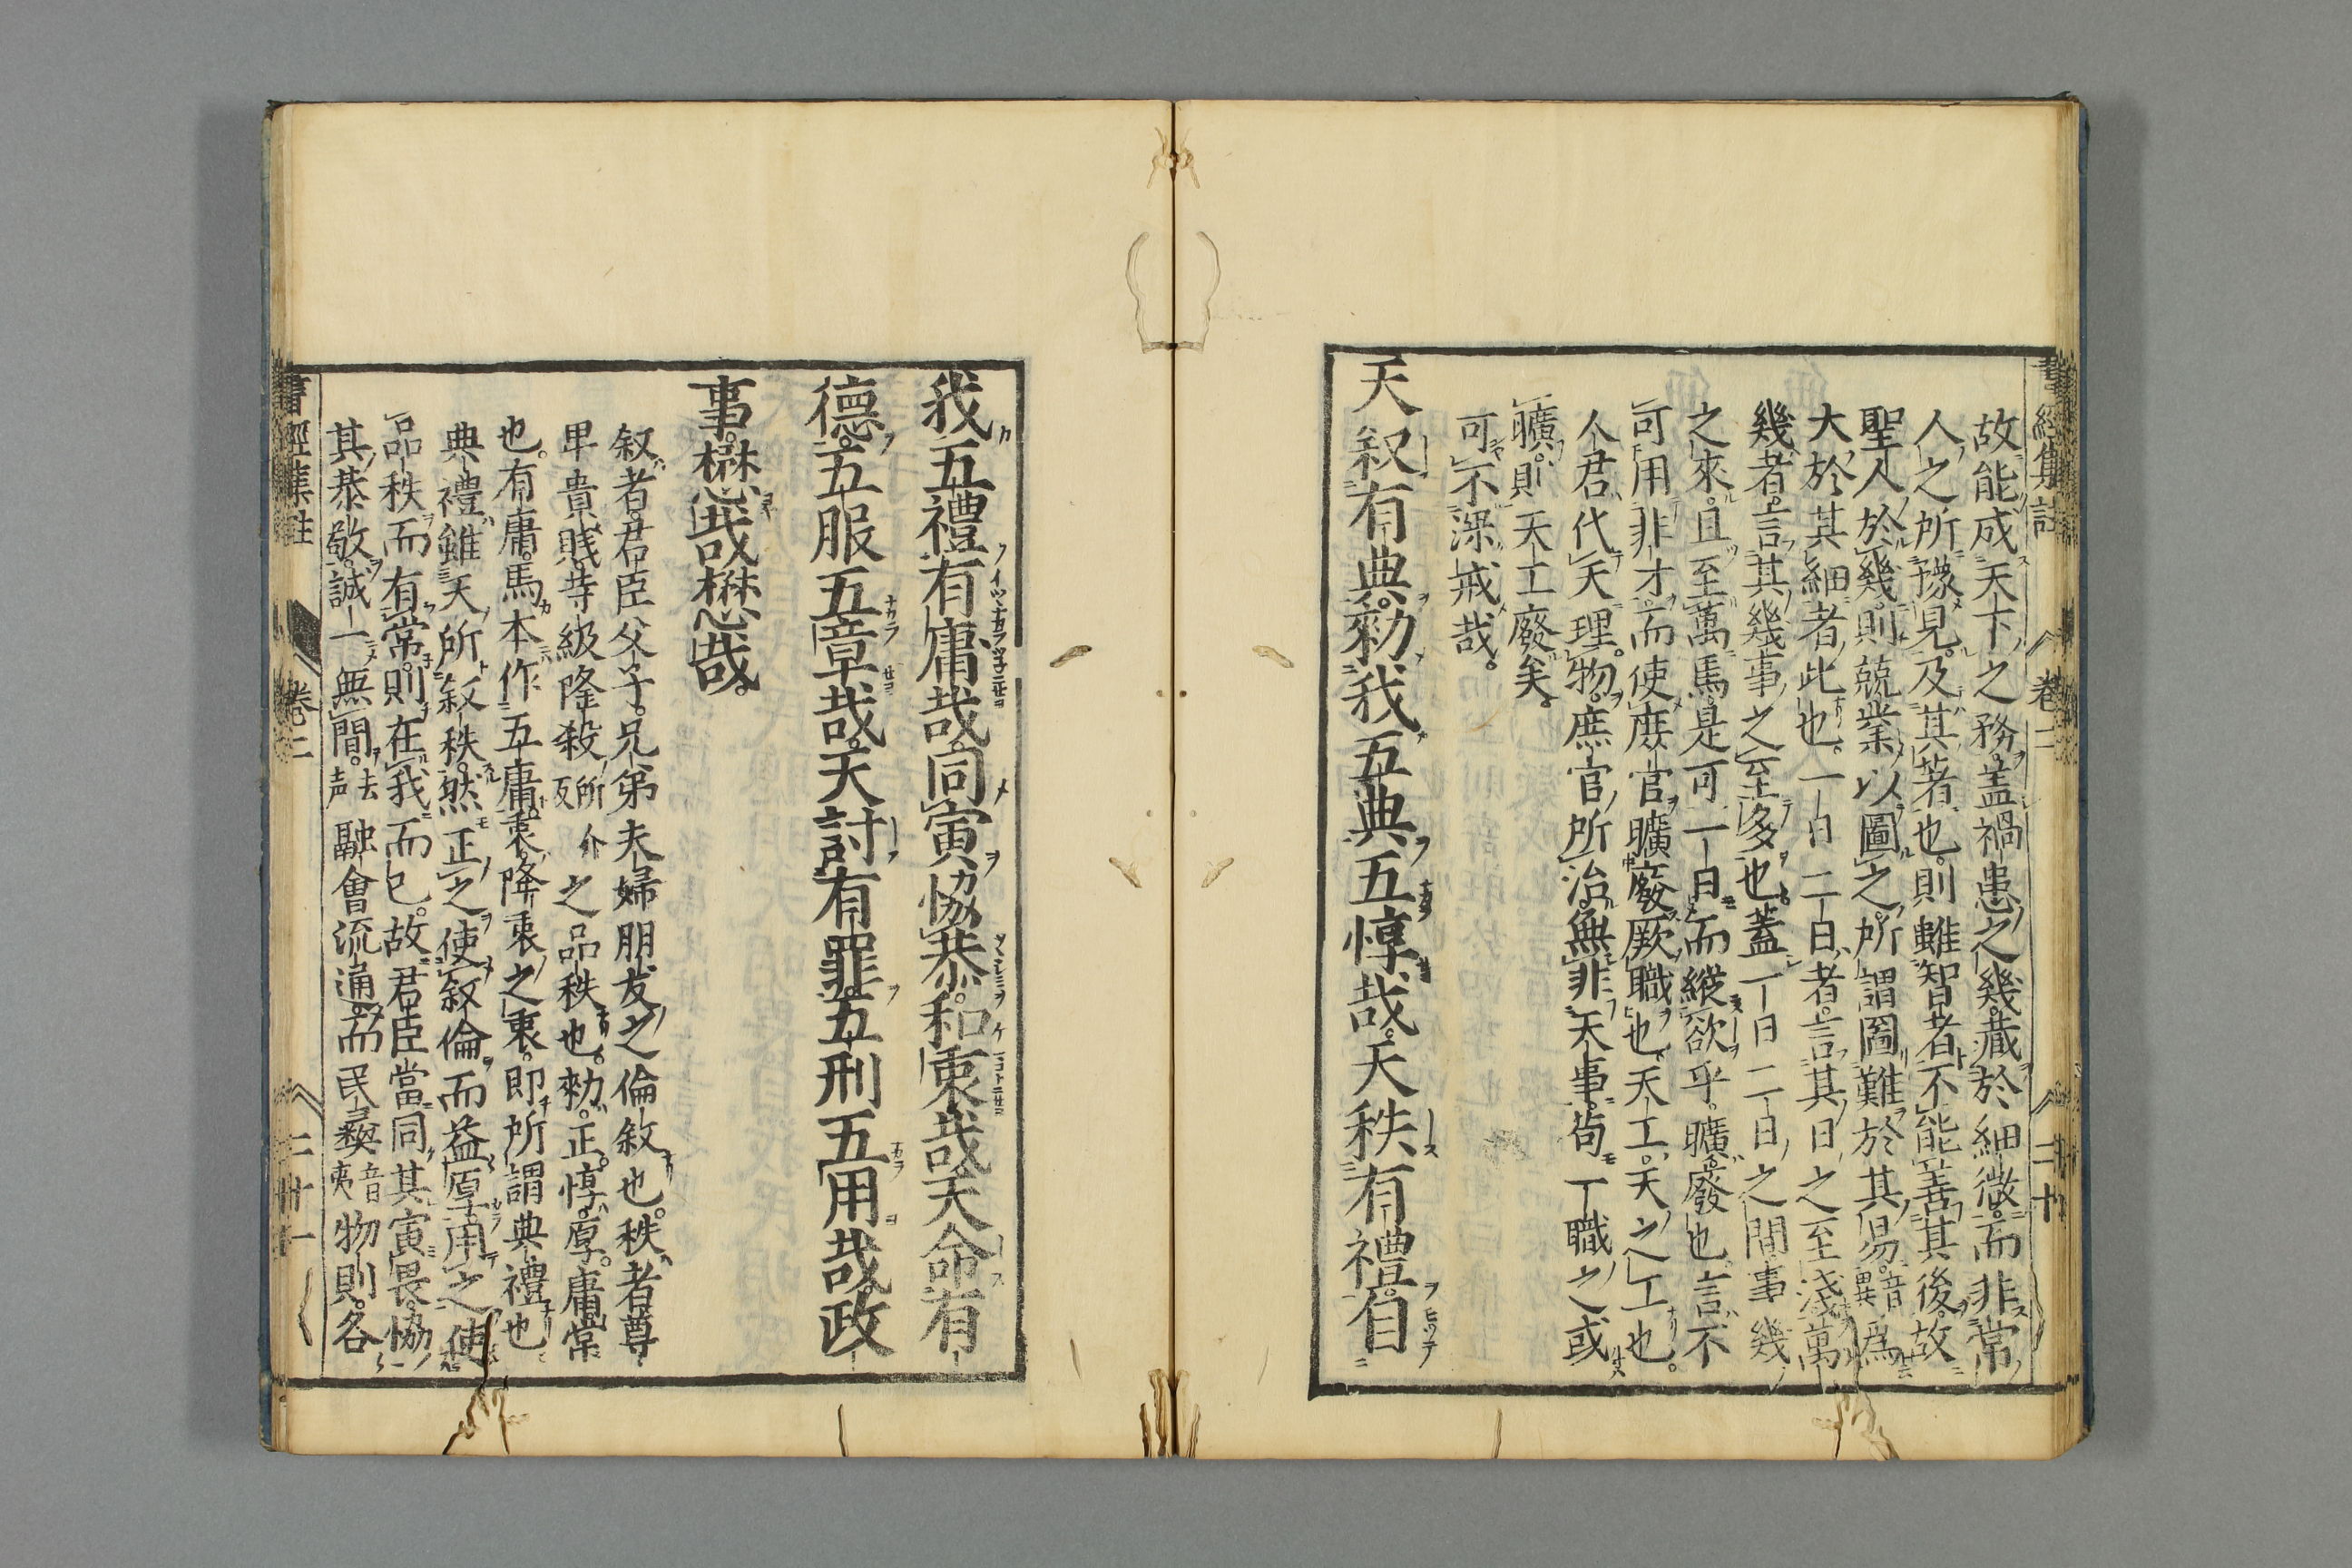 書經集註 卷二 二十
故能成天下之務。蓋禍患之幾。藏於細微。而非常
人之所豫見。及其著也。則雖智者不能善其後。故
聖人於幾。則兢業以圖之。所謂圖難於其易。音異爲
大於其細者此也。一日二日者。言其日之至淺。萬
幾者。言其幾事之至多也。蓋一日二日之間。事幾
之來。且至萬焉。是可一日而縱欲乎。曠。廢也。言不
可用非才。而使庶官曠廢厥職也。天工。天之工也。
人君代天理物。庶官所治。無非天事。苟一職之或
曠。則天工廢矣。
可不深戒哉。
天叙有典。勑我五典五惇哉。天秩有禮。自
我五禮有庸哉。同寅協恭和衷哉。天命有
德。五服五章哉。天討有罪。五刑五用哉。政
事。懋哉懋哉。
叙者。君臣父子。兄弟夫婦朋友之倫敘也。秩者尊
卑貴賤。等級隆殺所介反之品秩也。勑。正。惇。厚。庸。常
也。有庸。馬本作五庸。衷。降衷之衷。即所謂典禮也
典禮雖天所叙秩。然正之使叙倫而益厚。用之使
品秩而有常。則在我而已。故君臣當同其寅畏。協
其恭敬。誠一無間。去声融會流通。而民彝音夷物則。各
書經集註 卷二 二十一